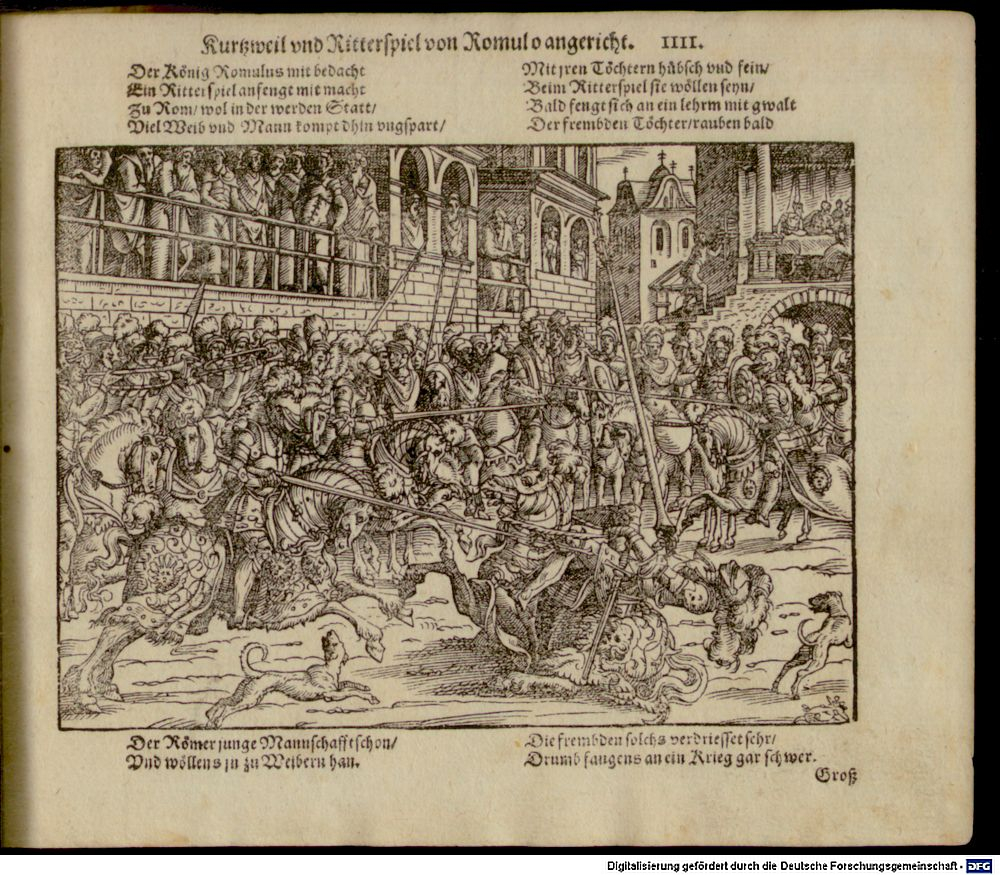 Kurtzweil vnd Ritterspiel von Romulo angericht. IIII.
Der König Romulus mit bedacht
Ein Ritterspiel anfengt mit macht
Zu Rom/ wol in der werden Statt/
Viel Weib vnd Mann kompt dhin vngspart/
Mit jren Töchtern hübsch vnd fein/
Beim Ritterspiel sie wöllen seyn/
Bald fengt sich an ein lehrm mit gwalt
Der frembden Töchter/rauben bald
Der Römer junge Mannschafft schon/
Vnd wöllens jn zu Weibern han.
Die frembden solchs verdriesset sehr/
Drumb fangens an ein Krieg gar schwer.
Groß
Digitalisierung gefördert durch die Deutsche Forschungsgemeinschaft - DFG